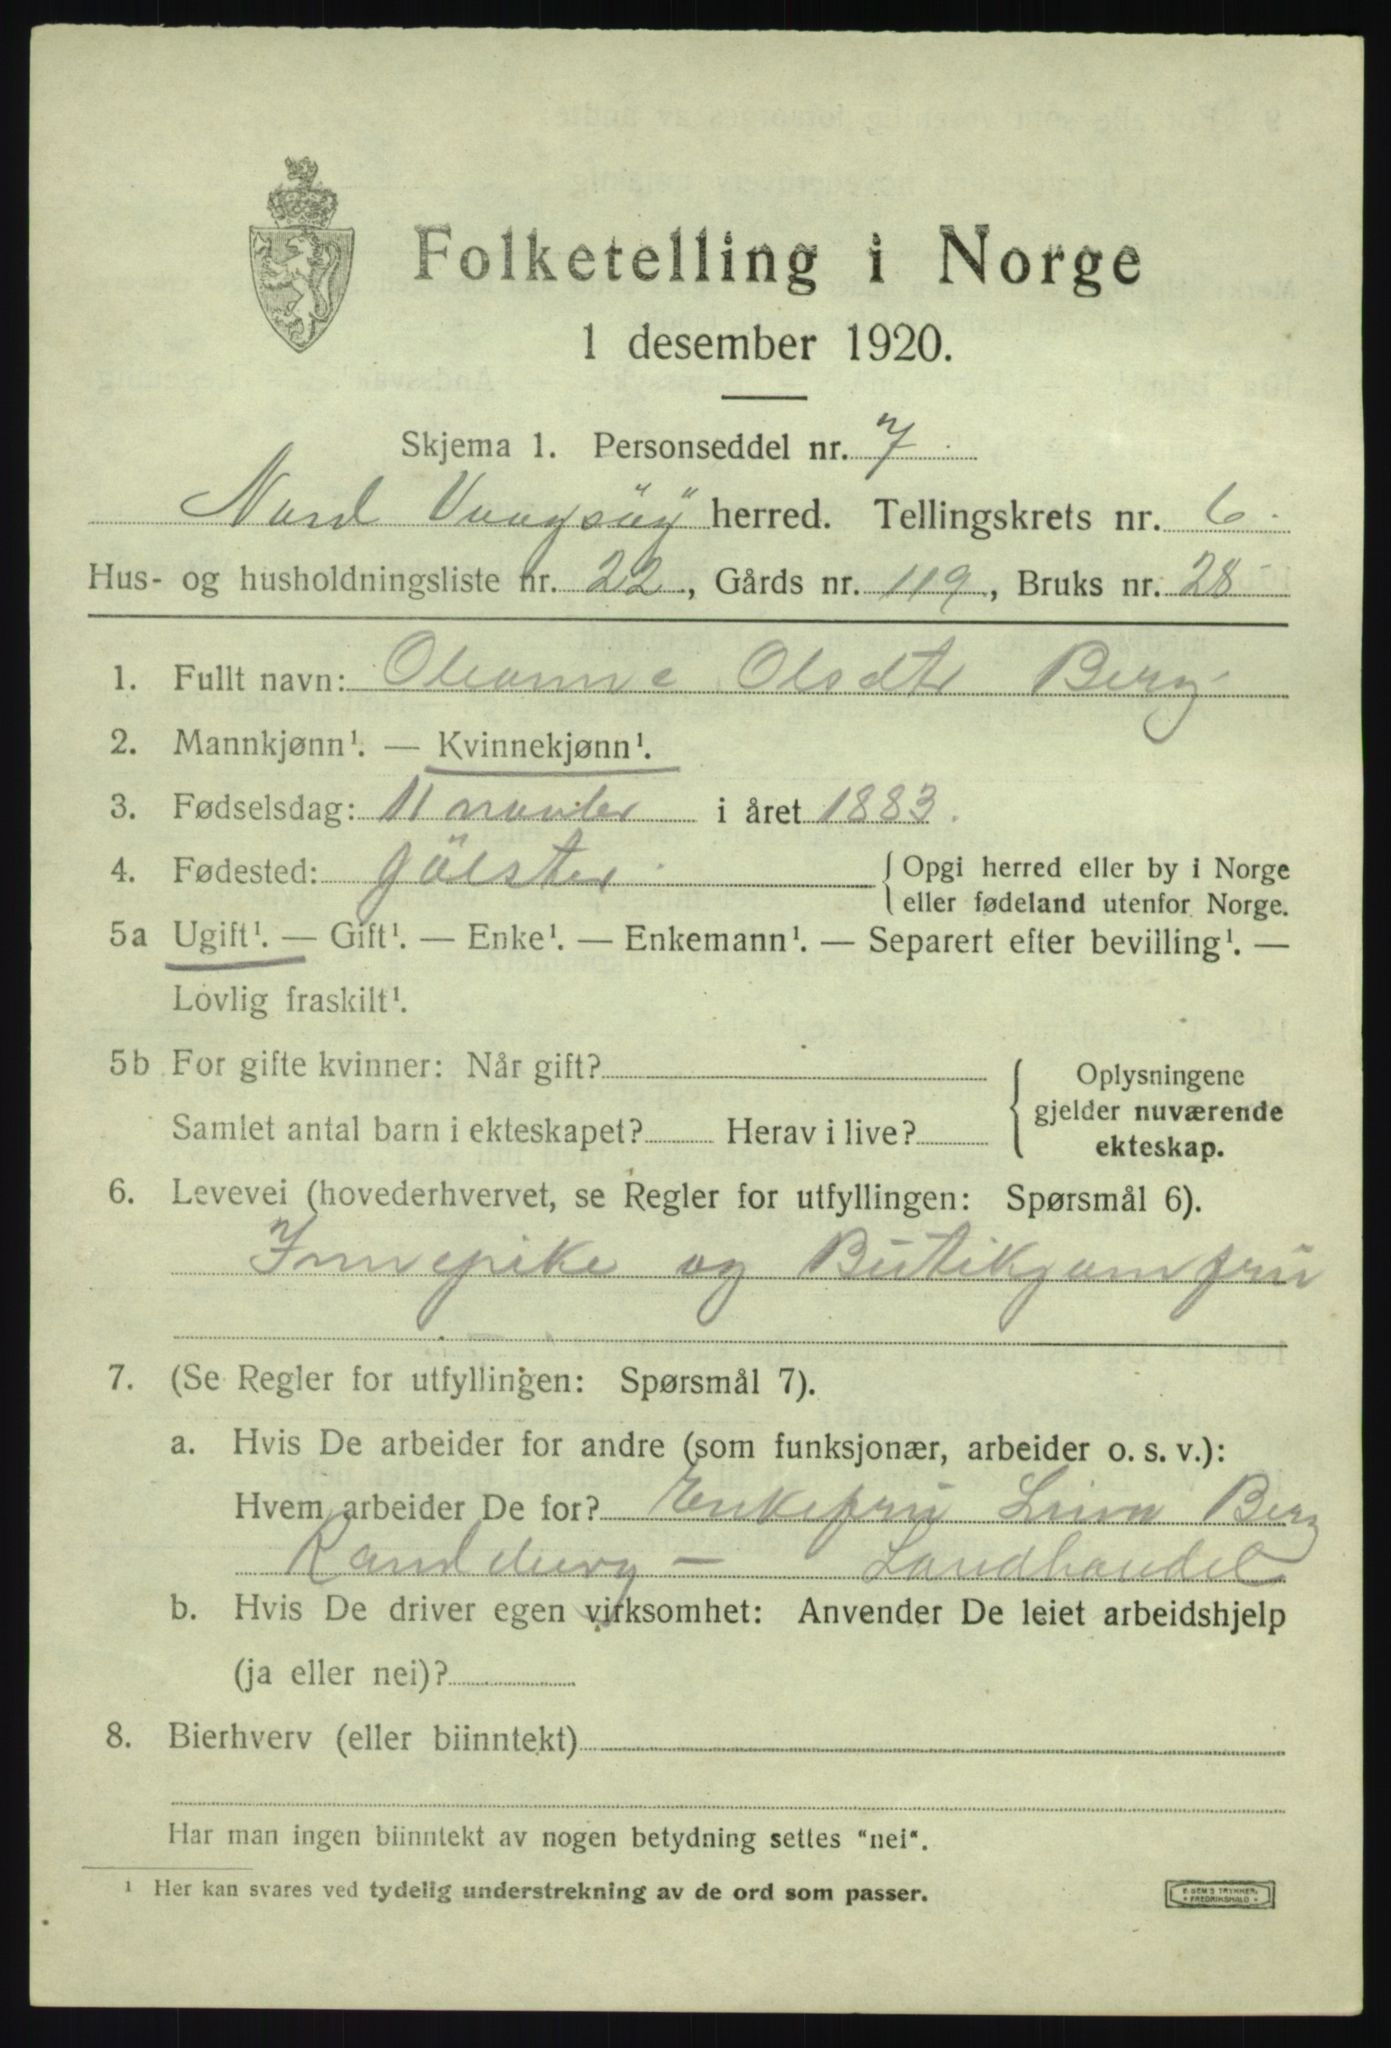 Folketelling i Norge
1 desember 1920.
Skjema 1. Personseddel nr. 7
Nord Vaagsöy herred. Tellingskrets nr. 6.
Hus- og husholdningsliste nr. 22, Gårds nr. 119, Bruks nr. 28
1. Fullt navn: Oleanne Olsdtr Berg
2. Mannkjønn¹. — Kvinnekjønn¹.
3. Fødselsdag: 11 novbr i året 1883.
4. Fødested: Jölster { Opgi herred eller by i Norge
eller fødeland utenfor Norge.
5a Ugift¹. — Gift¹. — Enke¹. — Enkemann¹. — Separert efter bevilling¹. —
Lovlig fraskilt¹.
5b For gifte kvinner: Når gift?
Samlet antal barn i ekteskapet? Herav i live?
{ Oplysningene
gjelder nuværende
ekteskap.
6. Levevei (hovederhvervet, se Regler for utfyllingen: Spørsmål 6).
Innepike og Butikjomfru
7. (Se Regler for utfyllingen: Spørsmål 7).
a. Hvis De arbeider for andre (som funksjonær, arbeider o. s. v.):
Hvem arbeider De for? Enkefru Berg
Landhandel
b. Hvis De driver egen virksomhet: Anvender De leiet arbeidshjelp
(ja eller nei)?
8. Bierhverv (eller biinntekt)
Har man ingen biinntekt av nogen betydning settes "nei".
¹ Her kan svares ved tydelig understrekning av de ord som passer.
FREDRIKSHALD